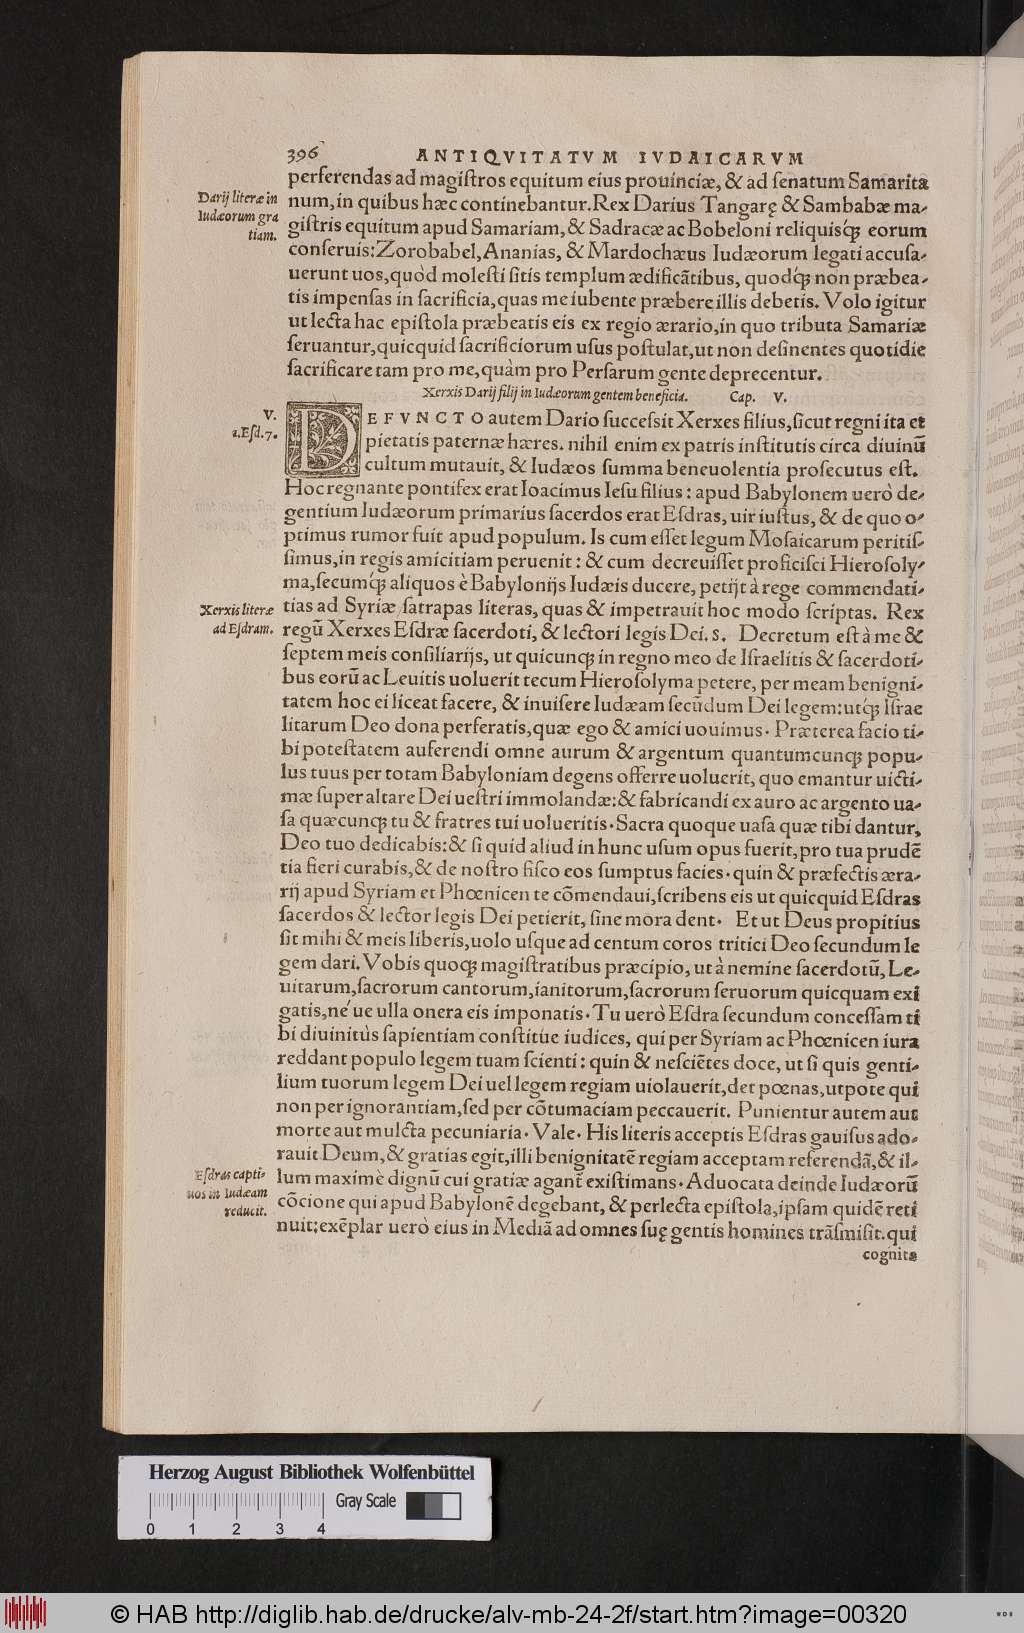 396 ANTIQVITATVM IVDAICARVM
perferendas ad magiſtros equitum eius prouinciæ, & ad ſenatum Samarita
Darij literæ in
Iudæorum gra
tiam.
num, in quibus hæc continebantur. Rex Darius Tangarę & Sambabæ ma-
giſtris equitum apud Samariam, & Sadracæ ac Bobeloni reliquisq́ꝫ eorum
conſeruis: Zorobabel, Ananias, & Mardochæus Iudæorum legati accuſa-
uerunt uos, quòd moleſti ſitis templum ædificātibus, quodq́ꝫ non præbea-
tis impenſas in ſacrificia, quas me iubente præbere illis debetis. Volo igitur
ut lecta hac epiſtola præbeatis eis ex regio ærario, in quo tributa Samariæ
ſeruantur, quicquid ſacrificiorum uſus poſtulat, ut non deſinentes quotidie
ſacrificare tam pro me, quàm pro Perſarum gente deprecentur.
Xerxis Darij filij in Iudæorum gentem beneficia. Cap. V.
V.
2.Eſd.7.
DEFVNCTO autem Dario ſucceſsit Xerxes filius, ſicut regni ita et
pietatis paternæ hæres. nihil enim ex patris inſtitutis circa diuinū
cultum mutauit, & Iudæos ſumma beneuolentia proſecutus eſt.
Hoc regnante pontifex erat Ioacimus Ieſu filius: apud Babylonem uerò de-
gentium Iudæorum primarius ſacerdos erat Eſdras, uir iuſtus, & de quo o-
ptimus rumor fuit apud populum. Is cum eſſet legum Moſaicarum peritiſ-
ſimus, in regis amicitiam peruenit: & cum decreuiſſet proficiſci Hieroſoly-
ma, ſecumq́ꝫ aliquos è Babylonijs Iudæis ducere, petijt à rege commendati-
Xerxis literæ
ad Eſdram.
tias ad Syriæ ſatrapas literas, quas & impetrauit hoc modo ſcriptas. Rex
regū Xerxes Eſdræ ſacerdoti, & lectori legis Dei. S. Decretum eſt à me &
ſeptem meis conſiliarijs, ut quicunqꝫ in regno meo de Iſraelitis & ſacerdoti-
bus eorū ac Leuitis uoluerit tecum Hieroſolyma petere, per meam benigni-
tatem hoc ei liceat facere, & inuiſere Iudæam ſecūdum Dei legem: utq́ꝫ Iſrae
litarum Deo dona perferatis, quæ ego & amici uouimus. Præterea facio ti-
bi poteſtatem auferendi omne aurum & argentum quantumcunqꝫ popu-
lus tuus per totam Babyloniam degens offerre uoluerit, quo emantur uicti-
mæ ſuper altare Dei ueſtri immolandæ: & fabricandi ex auro ac argento ua-
ſa quæcunqꝫ tu & fratres tui uolueritis. Sacra quoque uaſa quæ tibi dantur,
Deo tuo dedicabis: & ſi quid aliud in hunc uſum opus fuerit, pro tua prudē
tia fieri curabis, & de noſtro fiſco eos ſumptus facies. quin & præfectis æra-
rij apud Syriam et Phœnicen te cōmendaui, ſcribens eis ut quicquid Eſdras
ſacerdos & lector legis Dei petierit, ſine mora dent. Et ut Deus propitius
ſit mihi & meis liberis, uolo uſque ad centum coros tritici Deo ſecundum le
gem dari. Vobis quoqꝫ magiſtratibus præcipio, ut à nemine ſacerdotū, Le-
uitarum, ſacrorum cantorum, ianitorum, ſacrorum ſeruorum quicquam exi
gatis, né ue ulla onera eis imponatis. Tu uerò Eſdra ſecundum conceſſam ti
bi diuinitùs ſapientiam conſtitue iudices, qui per Syriam ac Phœnicen iura
reddant populo legem tuam ſcienti: quin & neſciētes doce, ut ſi quis genti-
lium tuorum legem Dei uel legem regiam uiolauerit, det pœnas, utpote qui
non per ignorantiam, ſed per cōtumaciam peccauerit. Punientur autem aut
morte aut mulcta pecuniaria. Vale. His literis acceptis Eſdras gauiſus ado-
rauit Deum, & gratias egit, illi benignitatē regiam acceptam referendā, & il-
Eſdras capti-
uos in Iudæam
reducit.
lum maxime dignū cui gratiæ agant̄ exiſtimans. Aduocata deinde Iudæorū
cōcione qui apud Babylonē degebant, & perlecta epiſtola, ipſam quidē reti
nuit: exēplar uerò eius in Mediā ad omnes ſuę gentis homines trāſmiſit. qui
cognita
Herzog August Bibliothek Wolfenbüttel
Gray Scale
0 1 2 3 4
© HAB http://diglib.hab.de/drucke/alv-mb-24-2f/start.htm?image=00320